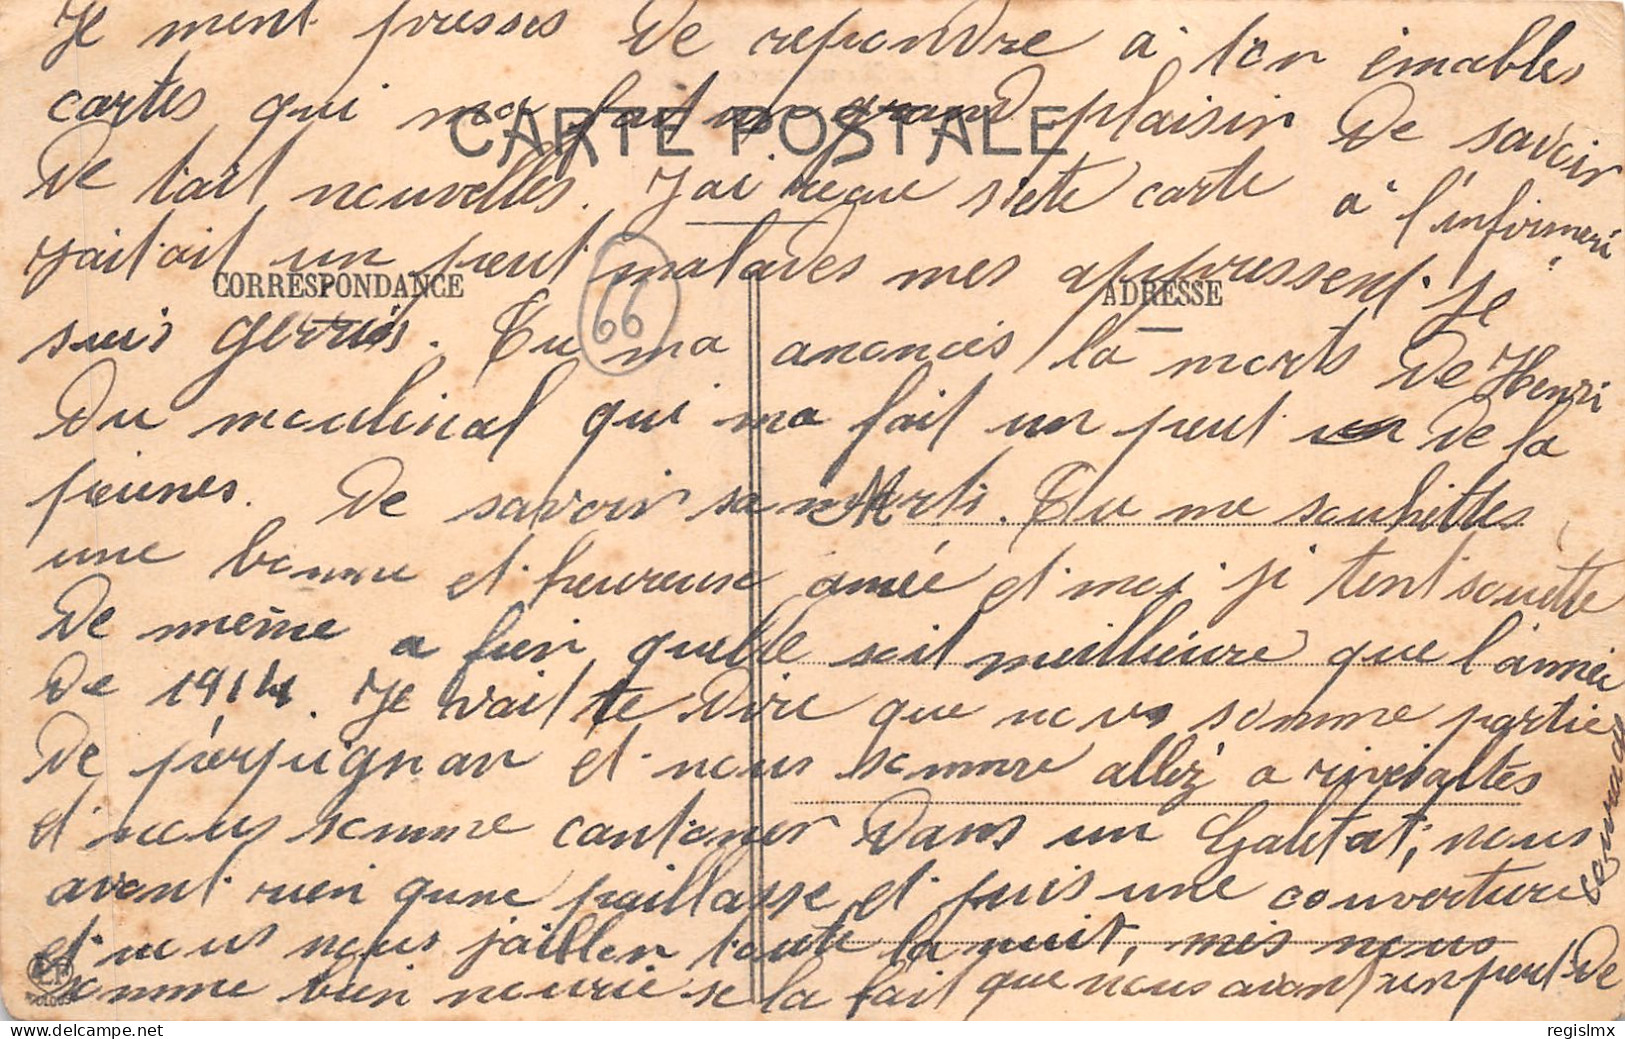 Je ment presses de repondre a ton émables
cartes qui ma fait un grand plaisir de savoir
CARTE POSTALE
de tait nouvelles. J'ai reçue siete carte à l'infirmeri
j'aitait un peut malades mes appressent je
CORRESPONDANCE
ADRESSE
66
suis gerris. Tu ma anoncés la morts de Henri
du moulinal qui ma fait un peut de la
peines. de savoir sa morts. Tu me souhettes
une bonne et heureuse anée et moi je tent souette
de même a fien quelle soit meilleure que l'année
de 1914. Je vait te dire que nous somme partie
de perpignan et nous somme allez a rivesaltes
et nous somme cantoner dans un Galetat, nous
avont rien qune paillasse et puis une couverture
et nous nous jaillon toute la nuit, mis nous
somme bien nourie se la fait que nous avont un peut de
courage